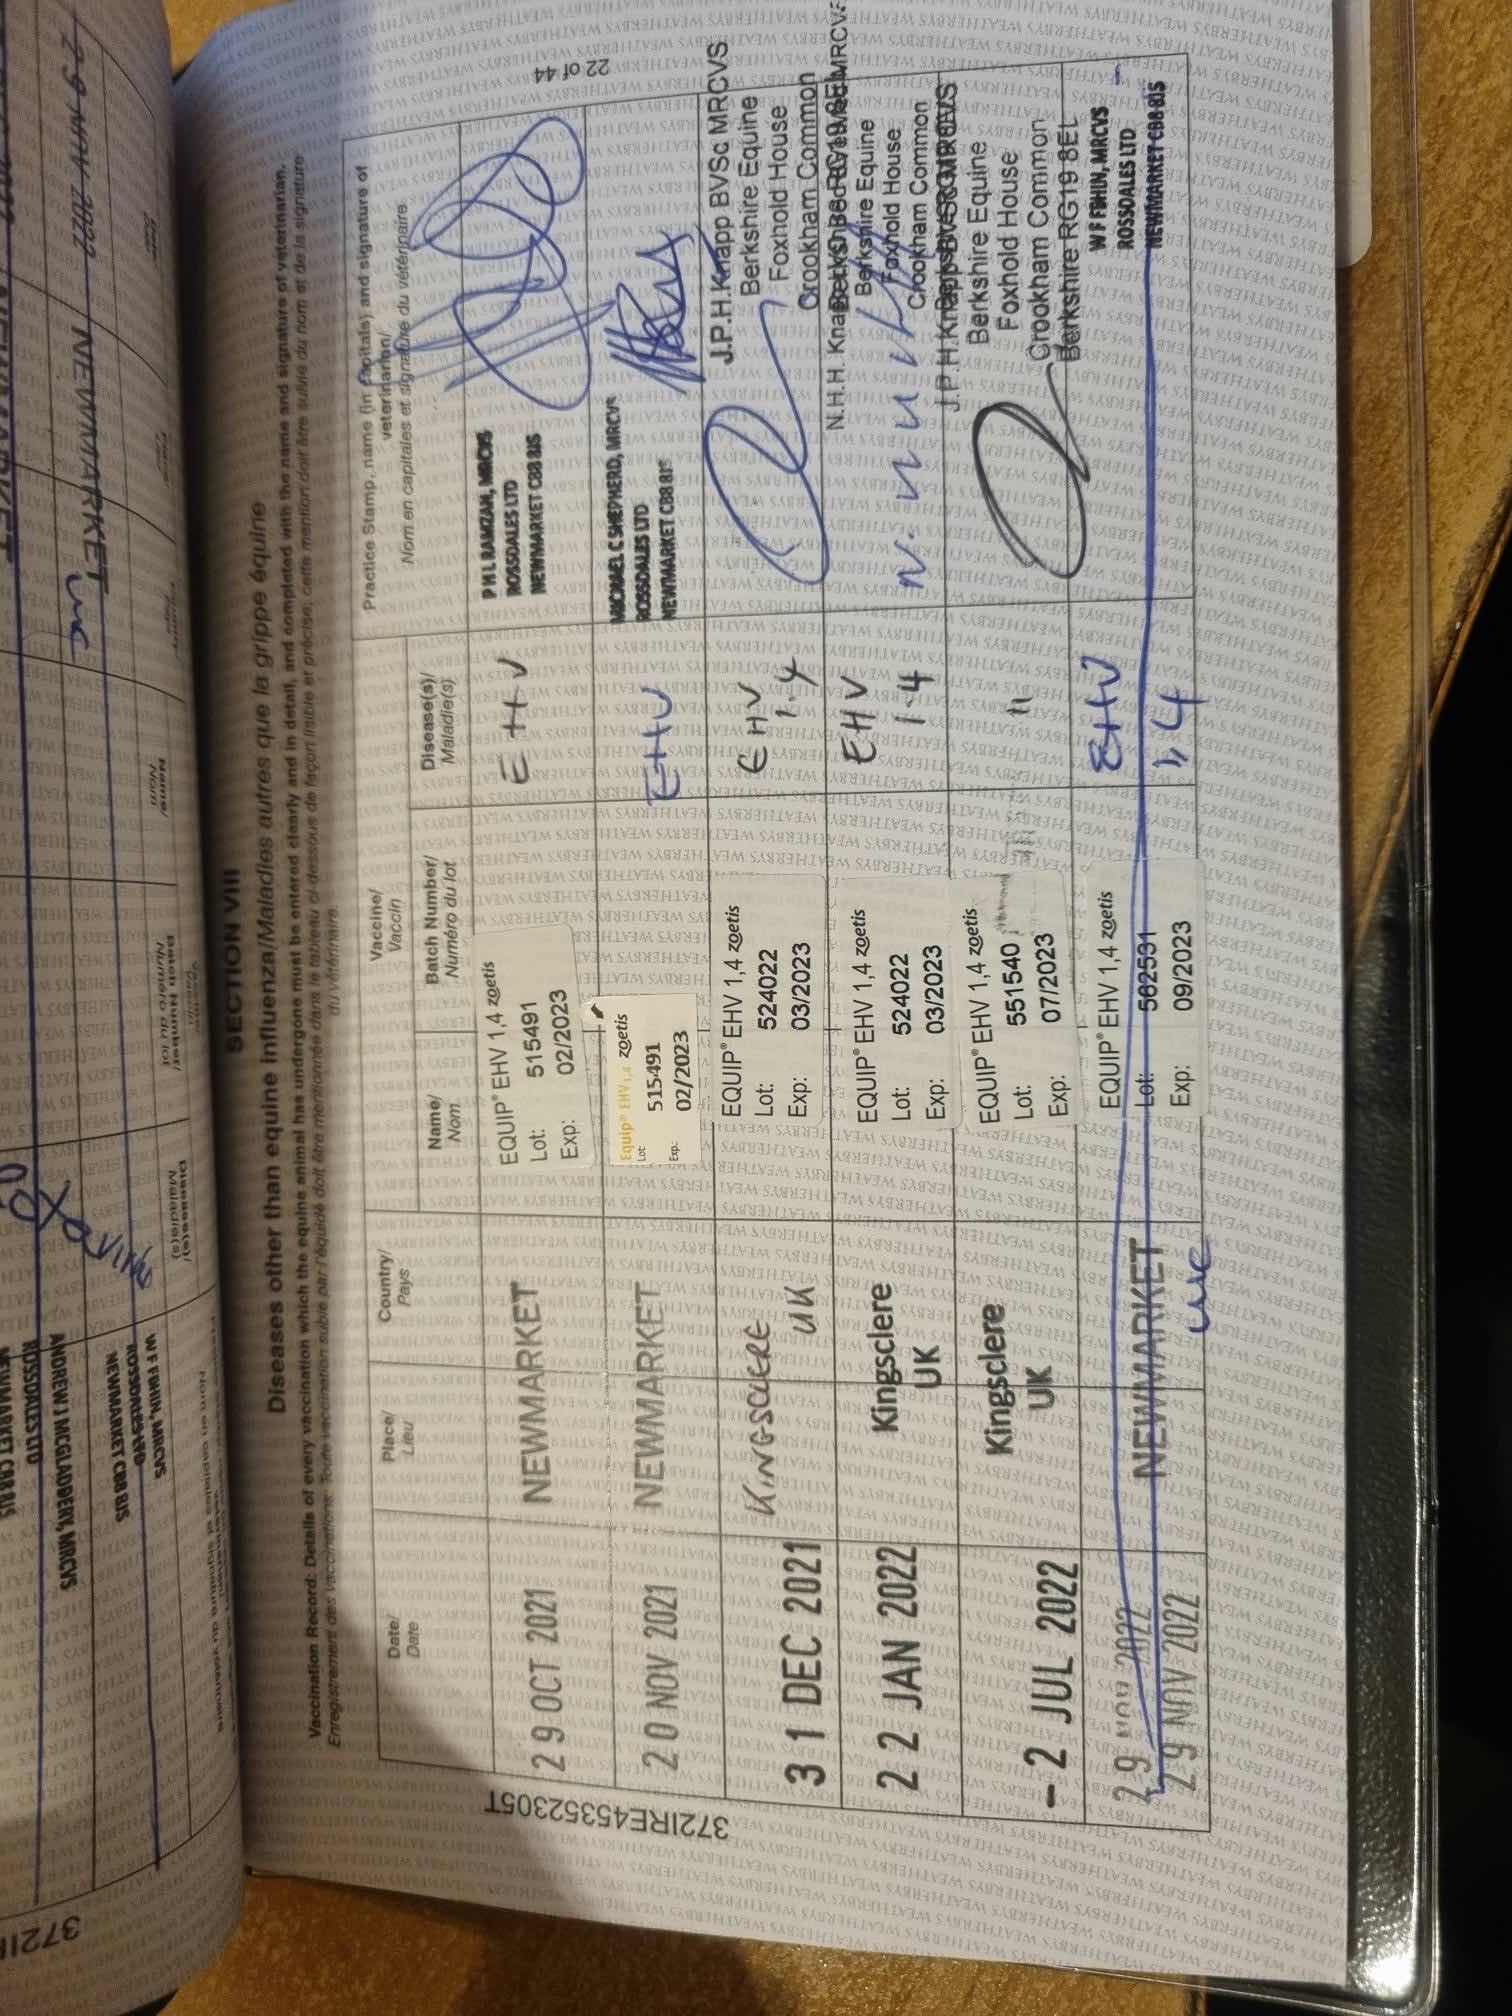 SECTION VIII
Diseases other than equine influenza/Maladies autres que la grippe équine
Vaccination Record: Details of every vaccination which the equine animal has undergone must be entered clearly and in detail, and completed with the name and signature of veterinarian.
Enregistrement des vaccinations: Toute vaccination subie par l'équidé doit être mentionnée dans le tableau ci-dessous de façon lisible et précise; cette mention doit être suivie du nom et de la signature
du vétérinaire.
Date/
Date
Place/
Lieu
Country/
Pays
Vaccine/
Vaccin
Name/
Nom
Batch Number/
Numéro du lot
Disease(s)/
Maladie(s)
Practice Stamp, name (in capitals) and signature of
veterinarian/
Nom en capitales et signature du vétérinaire
29 OCT 2021
NEWMARKET
EQUIP® EHV 1,4 zoetis
Lot: 515491
Exp: 02/2023
EHV
P H L RAMZAN, MRCVS
ROSSDALES LTD
NEWMARKET CB8 8JS
20 NOV 2021
NEWMARKET
Equip® EHV 1,4 zoetis
Lot: 515491
Exp: 02/2023
EHV
MICHAEL C SHEPHERD, MRCVS
ROSSDALES LTD
NEWMARKET CB8 8JS
31 DEC 2021
KINGSCLERE
UK
EQUIP® EHV 1,4 zoetis
Lot: 524022
Exp: 03/2023
EHV
1.4
J.P.H.Knapp BVSc MRCVS
Berkshire Equine
Foxhold House
Crookham Common
22 JAN 2022
Kingsclere
UK
EQUIP® EHV 1,4 zoetis
Lot: 524022
Exp: 03/2023
EHV
1.4
N.H.H. Knapp
Berkshire Equine
Foxhold House
Crookham Common
- 2 JUL 2022
Kingsclere
UK
EQUIP® EHV 1,4 zoetis
Lot: 551540
Exp: 07/2023
11
J.P.H.Knapp BVSc MRCVS
Berkshire Equine
Foxhold House
Crookham Common
Berkshire RG19 8EL
29 NOV 2022
29 NOV 2022
NEWMARKET
EQUIP® EHV 1,4 zoetis
Lot: 582531
Exp: 09/2023
EHV
1,4
ROSSDALES LTD
NEWMARKET CB8 8JS
372IRE45352305T
22 of 44
29 NOV 2022
NEWMARKET
Name/
Nom
Batch Number/
Numéro du lot
Disease(s)/
Maladie(s)
ANDREW J MCGLADDERY, MRCVS
ROSSDALES LTD
NEWMARKET CB8 8JS
ROSSDALES LTD
NEWMARKET CB8 8JS